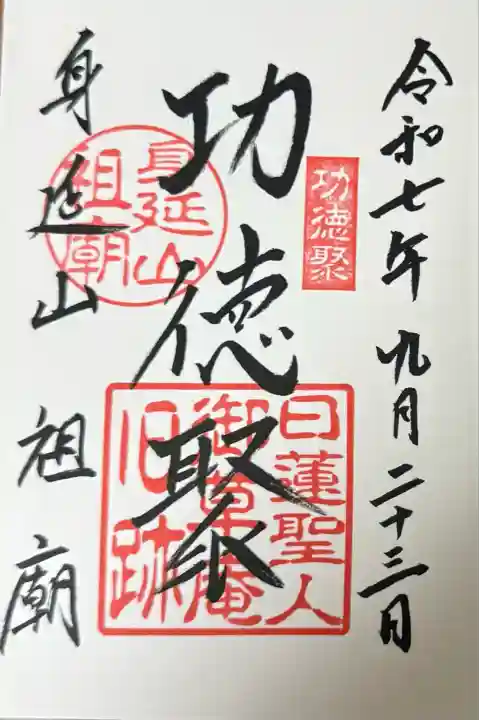 令和七年九月二十三日
功徳聚
功徳聚
日蓮聖人
御草庵
旧跡
身延山
祖廟
身延山祖廟